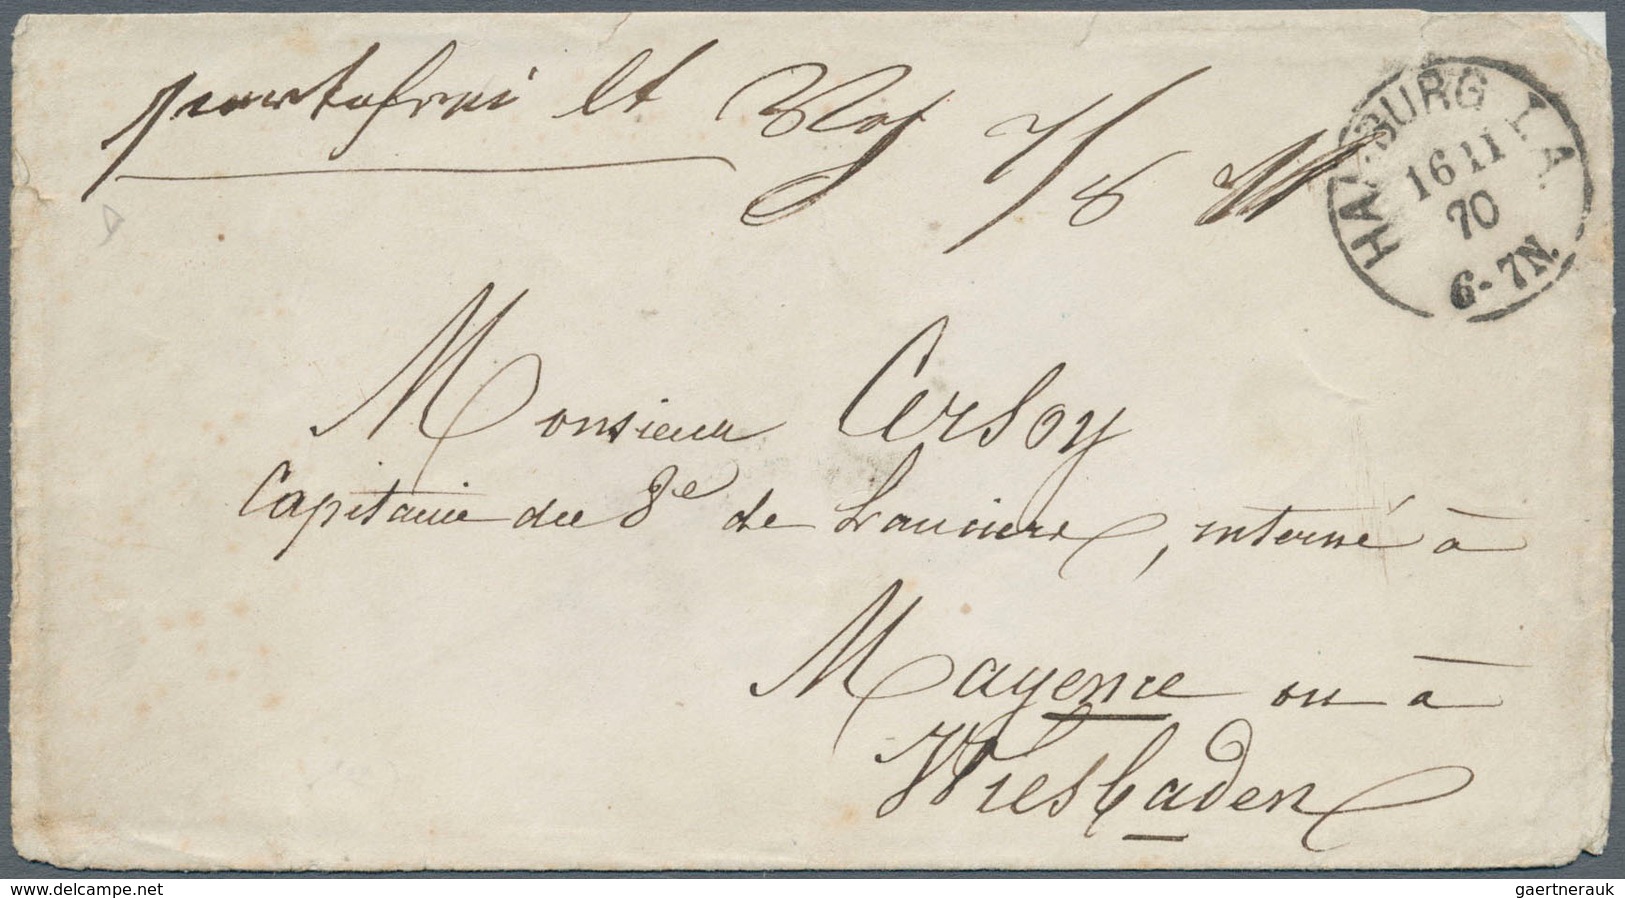 portofrei lt Vfg 7/8
HAMBURG I.A.
16 11
70
6-7N.
Monsieur Cersoy
Capitaine du 8e de Lanciers, interné à
Mayence ou à
Wiesbaden
gaertnerauk